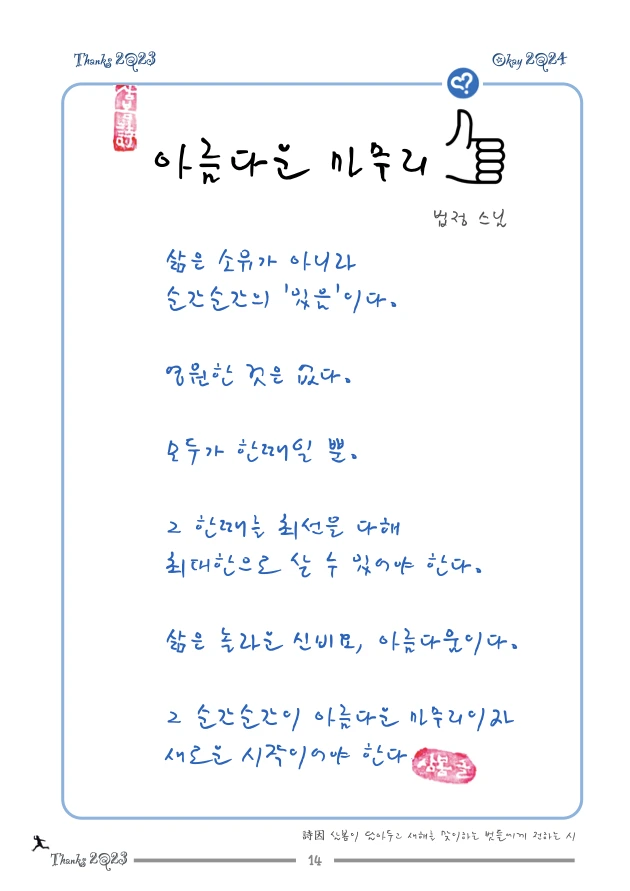 Thanks 2@23
Okay 2@24
아름다운 마무리
법정 스님
삶은 소유가 아니라
순간순간의 '있음'이다.
영원한 것은 없다.
모두가 한때일 뿐.
그 한때를 최선을 다해
최대한으로 살 수 있어야 한다.
삶은 놀라운 신비요, 아름다움이다.
그 순간순간이 아름다운 마무리이자
새로운 시작이어야 한다
詩因 산봄이 갈아두고 새해를 맞이하는 벗들에게 전하는 시
Thanks 2@23
14